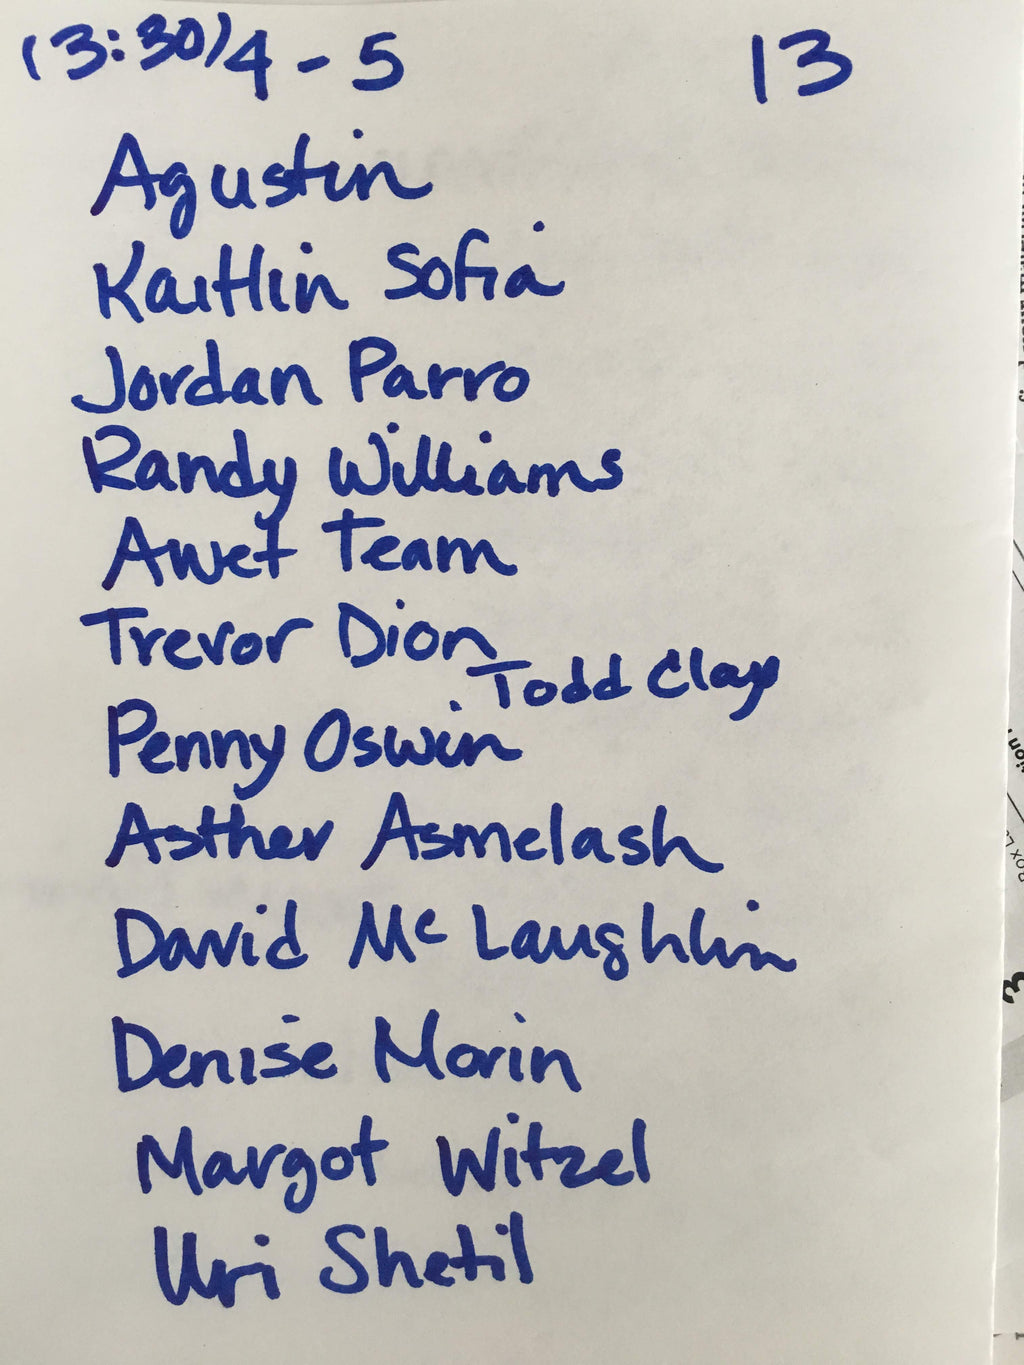 (3:30) 4 - 5 13
Agustin
Kaitlin Sofia
Jordan Parro
Randy Williams
Awet Team
Trevor Dion
Todd Clay
Penny Oswin
Asther Asmelash
David Mc Laughlin
Denise Morin
Margot Witzel
Uri Shetil